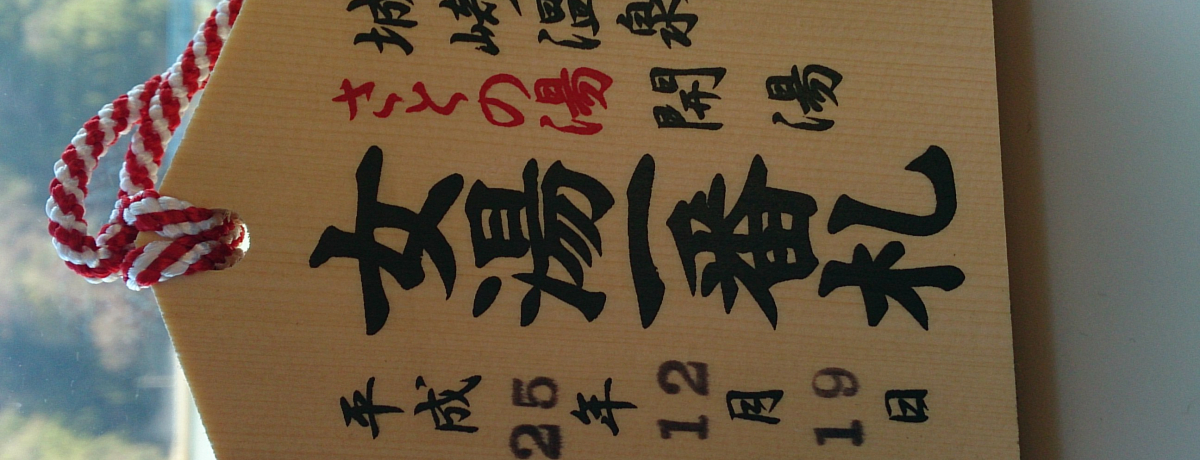 城崎温泉
さとの湯開湯
女湯一番札
平成25年12月19日